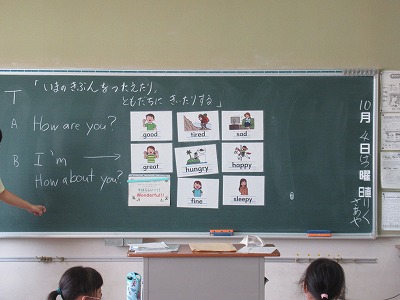 T
「いまのきぶんをつたえたり、
ともだちに きいたりする」
A How are you?
B I'm
How about you?
good
tired
sad
great
hungry
happy
Wonderful!!
fine
sleepy
10月4日
曜